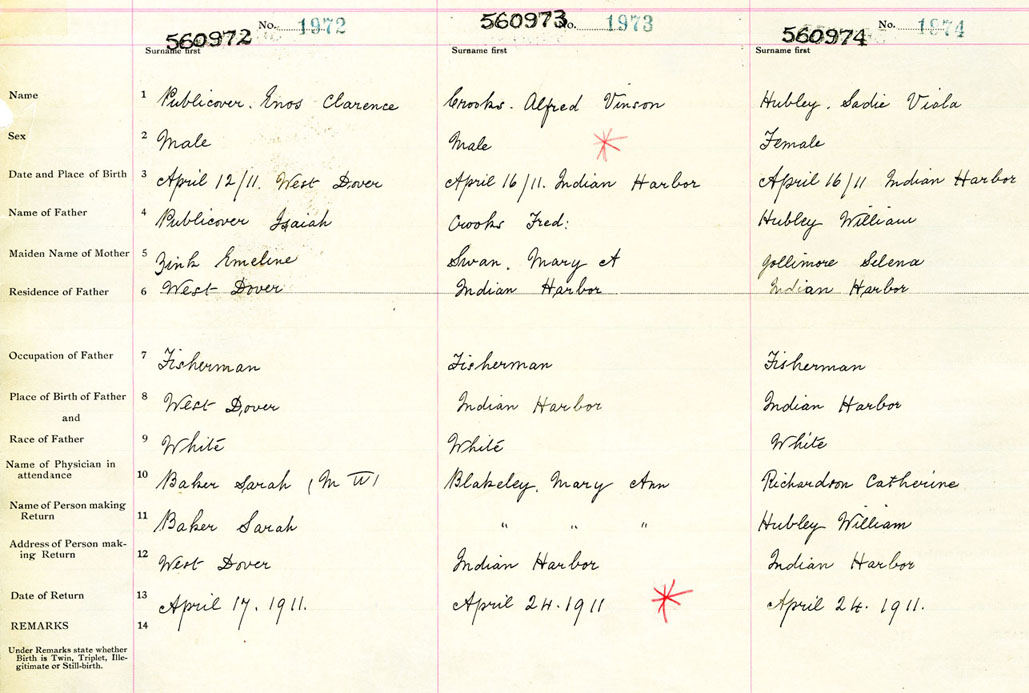 No. 1972 560973 No. 1973 No. 1974
560972 560974
Surname first Surname first Surname first
Name 1 Publicover. Enos Clarence Crooks. Alfred Vinson Hubley, Sadie Viola
Sex 2 Male Male Female
Date and Place of Birth 3 April 12/11. West Dover April 16/11. Indian Harbor April 16/11 Indian Harbor
Name of Father 4 Publicover Isaiah Crooks Fred: Hubley William
Maiden Name of Mother 5 Zink Emeline Swan, Mary A Gollimore Selena
Residence of Father 6 West Dover Indian Harbor Indian Harbor
Occupation of Father 7 Fisherman Fisherman Fisherman
Place of Birth of Father 8 West Dover Indian Harbor Indian Harbor
and
Race of Father 9 White White White
Name of Physician in
attendance 10 Baker Sarah (M W) Blakeley, Mary Ann Richardson Catherine
Name of Person making
Return 11 Baker Sarah " " " Hubley William
Address of Person mak-
ing Return 12 West Dover Indian Harbor Indian Harbor
Date of Return 13 April 17. 1911. April 24. 1911 April 24. 1911.
REMARKS 14
Under Remarks state whether
Birth is Twin, Triplet, Ille-
gitimate or Still-birth.